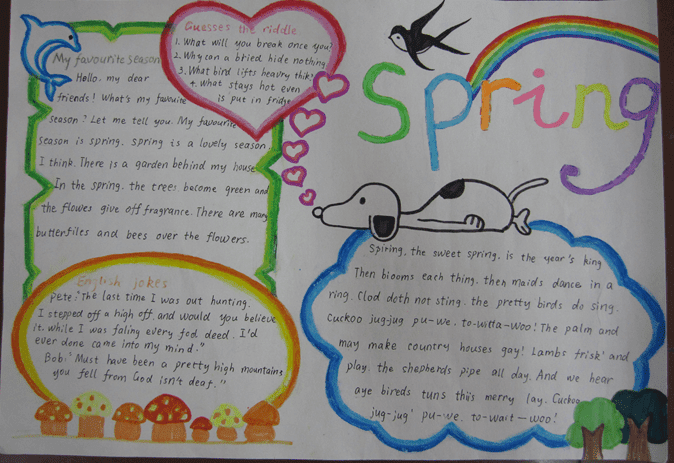 My favourite season
Hello, my dear
friends! What's my favouite
season? Let me tell you. My favourite
season is spring. Spring is a lovely season.
I think. There is a garden behind my house
In the spring. the trees become green and
the flowes give off fragrance. There are many
butterfiles and bees over the flowers.
Guesses the riddle
1. What will you break once you?
2. Why can a bried hide nothing
3. What bird lifts heavry thik?
4. what stays hot even
is put in fridge
Spring
English jokes
Pete: "The last time I was out hunting.
I stepped off a high off. and would you believe
it. while I was faling every fod deed. I'd
ever done came into my mind."
Bob: "Must have been a pretty high mountains
you fell from God isn't deaf."
Spiring, the sweet spring. is the year's king
Then blooms each thing. then maids dance in a
ring. Clod doth not sting. the pretty birds do sing.
Cuckoo jug-jug pu-we. to-witta-woo! The palm and
may make country houses gay! Lambs frisk' and
play. the shepherds pipe all day. And we hear
aye bireds tuns this merry lay. Cuckoo
jug-jug' pu-we. to-wait-woo!